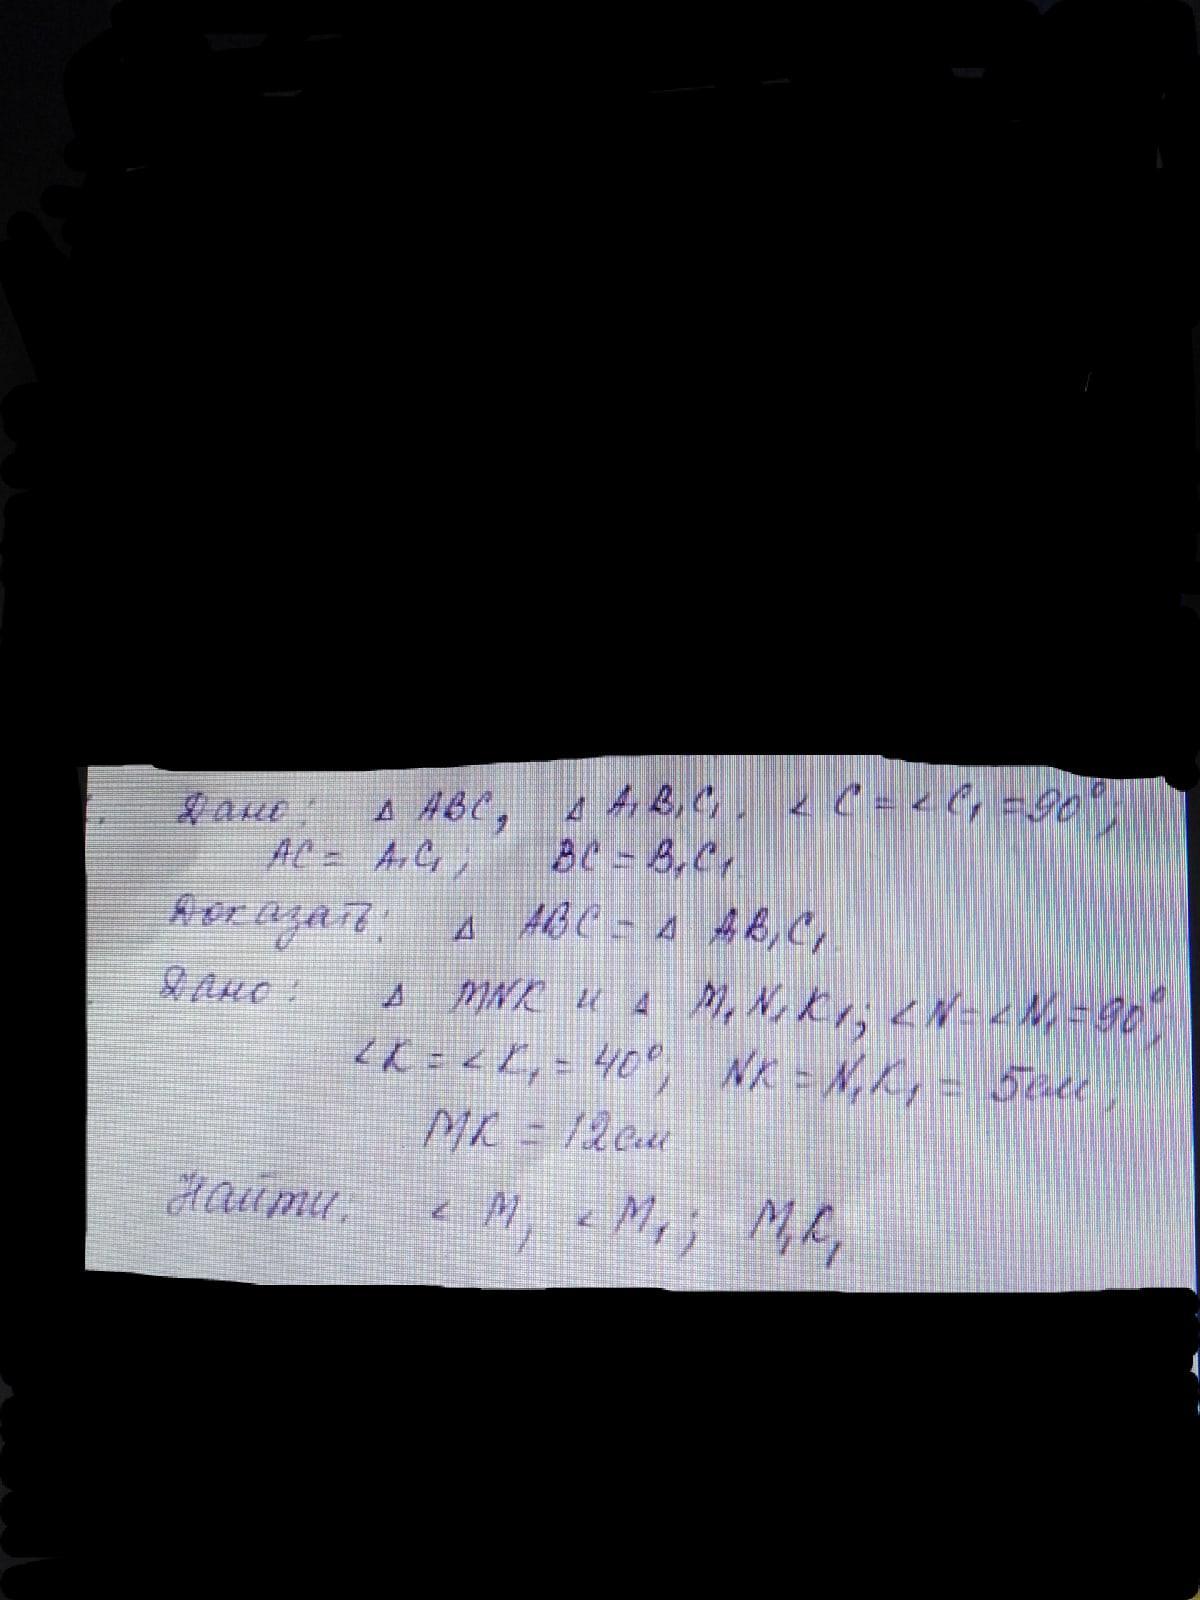 Дано: Δ ABC, Δ A₁B₁C₁. < C = < C₁ = 90°;
AC = A₁C₁; BC = B₁C₁
Доказать: Δ ABC = Δ AB₁C₁
Дано: Δ MNK и Δ M₁N₁K₁; < N = < N₁ = 90°;
< K = < K₁ = 40°; NK = N₁K₁ = 5см;
MK = 12см
Найти: < M, < M₁; M₁K₁